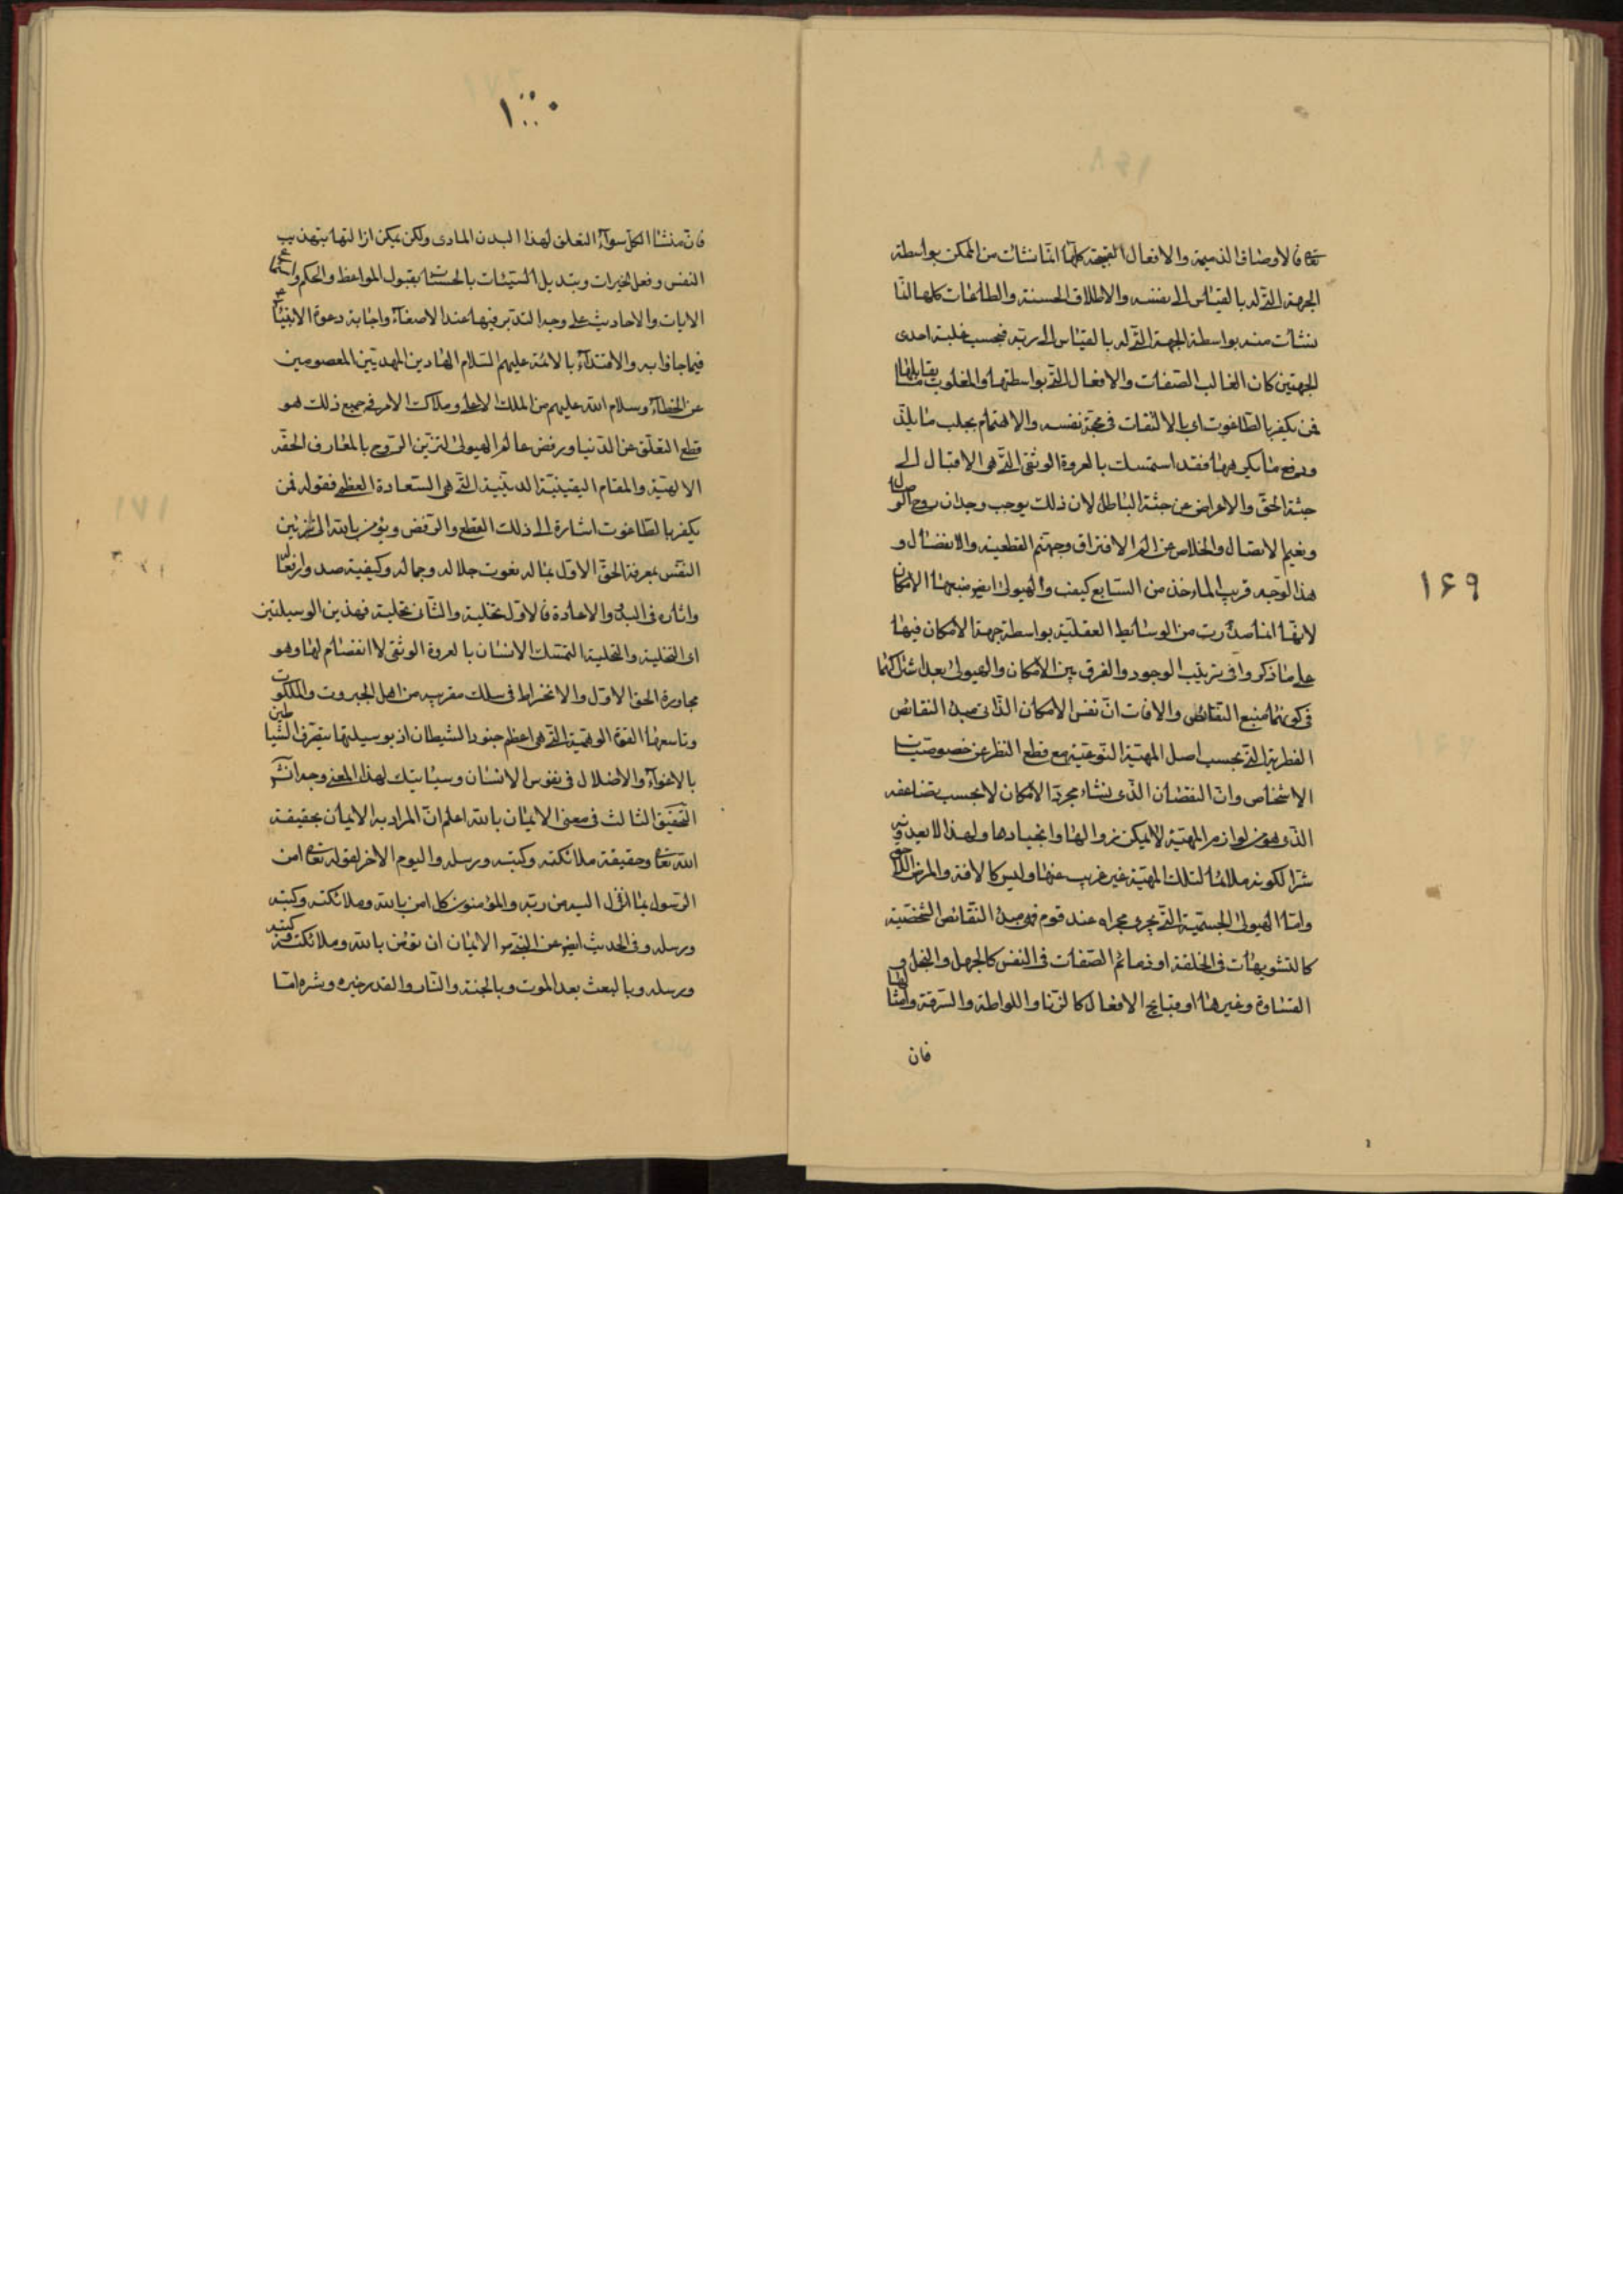 تعالى فالاوصاف الذميمة والافعال القبيحة كلها انما نشات من الممكن بواسطة
الجهة التى له بالقياس الى نفسه والاطلاق الحسنة والطاعات كلها انما
نشات منه بواسطة الجهة التى له بالقياس الى ربه فبحسب غلبة احدى
الجهتين كان الغالب الصفات والافعال التى بواسطتها والمغلوب ما يقابلها
فمن يكفر بالطاغوت اى بالالتفات فى محبة نفسه والاهتمام بجلب ما يلذ
ودفع ما يكرهها فقد استمسك بالعروة الوثقى التى هى الاقبال الى
جنبة الحق والاعراض عن جنبة الباطل لان ذلك يوجب وجدان روح الوصال
ونعيم الاتصال والخلاص عن الم الافتراق وجهنم القطعية والانفصال و
هذا الوجه قريب المأخذ من السابع كيف والهيولى ايض منبعها الامكان
لانها انما صدرت من الوسائط العقلية بواسطة جهة الامكان فيها
على ما ذكروا فى ترتيب الوجود والفرق بين الامكان والهيولى بعد اشتراكهما
فى كونهما منبع النقائص والافات ان نفس الامكان الذاتى مبدء النقائص
الفطرية التى بحسب اصل المهية النوعية مع قطع النظر عن خصوصيات
الاشخاص وان النقصان الذى نشاء مجرد الامكان لا بحسب تضاعفه
الذى هو من لوازم المهية لا يمكن زوالها وانجبارها ولهذا لا يعد فيه
شرا لكونه ملائما لتلك المهية غير غريب عنها وليس كالافة والمرض اللاحق
واما الهيولى الجسمية التى يجرى مجراه عند قوم فهى مبدء النقائص الشخصية
كالتشويهات فى الخلقة او ذمائم الصفات فى النفس كالجهل والبخل و
القساوة وغيرها او قبايح الافعال كالزنا واللواطة والسرقة وامثالها
فان
۱۶۹
۱۰۰۰
فان منشا الكل سواء التعلق لهذا البدن المادى ولكن يمكن ازالتها بتهذيب
النفس وفعل الخيرات وبتديل السيئات بالحسنات بقبول المواعظ والحكم واستماع
الايات والاحاديث على وجه التدبر فيها عند الاصغاء واجابة دعوة الانبياء
فيما جاؤا به والاقتداء بالائمة عليهم السلام الهادين المهديين المعصومين
عن الخطاء وسلام الله عليهم من الملك الاعلى وملاك الامر فى جميع ذلك هو
قطع التعلق عن الدنيا ورفض عالم الهيولى لتزين الروح بالمعارف الحقه
الالهية والمقام اليقينية الدينية التى هى السعادة العظمى فقوله فمن
يكفر بالطاغوت اشارة الى ذلك القطع والرفض ويؤمن بالله الى تزيين
النفس بمعرفة الحق الاول بما له نعوت جلاله وجماله وكيفية صدور افعاله
واثاره فى البدء والاعادة فالاول تخلية والثانى تحلية فهذين الوسيلتين
اى التخلية والتحلية التمسك الانسان بالعروة الوثقى لا انفصام لها وهو
مجاورة الحق الاول والانخراط فى سلك مقربيه من اهل الجبروت والملكوت
وتاسعها القوة الوهمية التى هى اعظم جنود الشيطان اذ بوسيلتها يتصرف الشياطين
بالاغواء والاضلال فى نفوس الانسان وسياتيك لهذا المعنى وجدانش
التحقيق الثالث فى معنى الايمان بالله اعلم ان المراد به الايمان بحقيقة
الله تعالى وحقيقة ملائكته وكتبه ورسله واليوم الاخر لقوله تعالى امن
الرسول بما انزل اليه من ربه والمؤمنون كل امن بالله وملائكته وكتبه
ورسله وفى الحديث ايض عن النبى ص الايمان ان تؤمن بالله وملائكته وكتبه
ورسله وبالبعث بعد الموت وبالجنة والنار والقدر خيره وشره اما